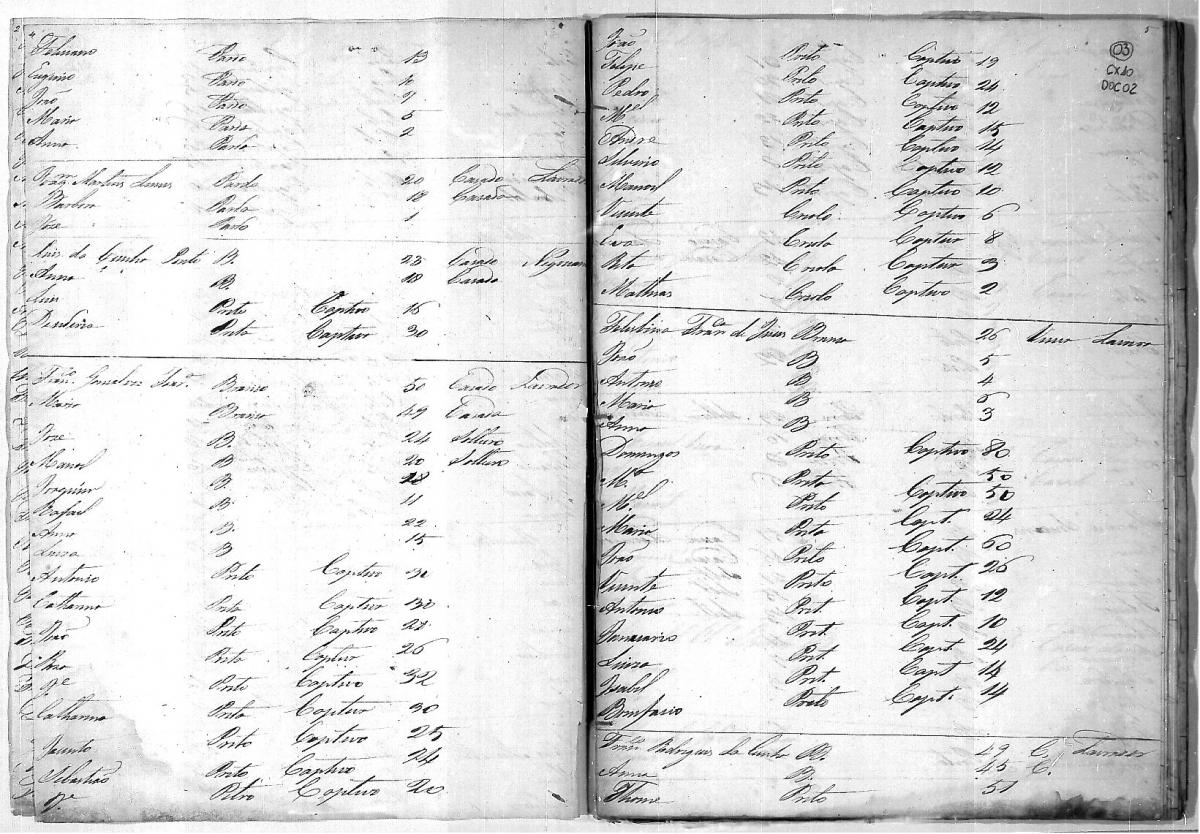 4
Feliciano Pardo 13
Eugenio Pardo 11
João Pardo 7
Maria Parda 5
Anna Parda 2
Joaqm Martins Lemes Pardo 20 Casado Lavrador
Barbra Parda 18 Casada
Jose Pardo 1
Luis da Cunha Pinto B. 28 Casado Negocian
Anna B 18 Casada
Luis Preto Captivo 16
Desideria Preto Captivo 30
Franco Gonçalves Branco 50 Casado Lavrador
Maria Branca 49 Casada
Jose B. 24 Solteiro
Manoel B 20 Solteiro
Joaquim B. 18
Rafael B 11
Anna B. 22
Luiza B 15
Antonio Preto Captivo 31
Catharina Preta Captiva 30
João Preto Captivo 28
Rosa Preta Captiva 26
Je Preto Captivo 32
Catharina Preta Captiva 30
Jacinto Preto Captivo 25
Sebastião Preto Captivo 24
Je Preto Captivo 20
5
03
CX10
DOC 02
João Preto Captivo 19
Felipe Preto Captivo 24
Pedro Preto Captivo 12
Mel Preto Captivo 15
Andre Preto Captivo 14
Silverio Preto Captivo 12
Manoel Preto Captivo 10
Vicente Criolo Captivo 6
Eva Criola Captiva 8
Rita Criola Captiva 3
Mathias Criolo Captivo 2
Franca de Jesus Branca 26 Viuva Lavrador
João B 5
Antonio B 4
Maria B 6
Anna B 3
Domingos Preto Captivo 80
Ma Preta Captiva 50
Mel Preto Captivo 50
Maria Preta Capt. 24
João Preto Capt. 60
Vicente Preto Capt. 26
Antonio Pret. Capt. 12
Januario Pret. Capt. 10
Luiza Pret. Capt. 24
Isabel Pret. Capt 14
Bonifacio Preto Capt. 14
Franco Rodrigues da Cunha B. 49 C. Lavrador
Anna B. 45 C.
Thome Preto 51